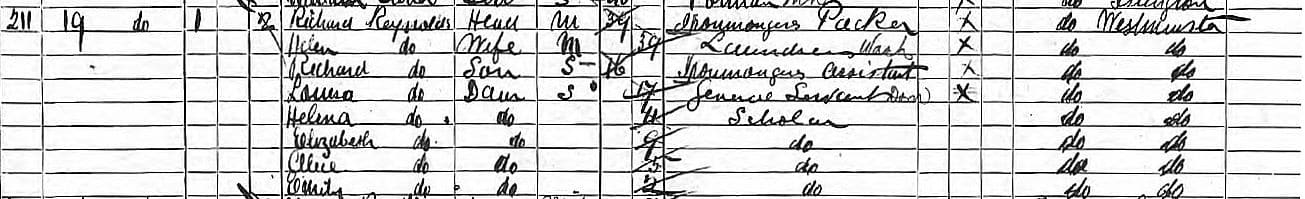 211 19 do 1 2 Richard Reynolds Head M 39 Ironmongers Packer X do Westminster
Helen do Wife M 39 Laundress Wash X do do
Richard do Son S 16 Ironmongers Assistant X do do
Louisa do Daur S 17 General Servant Dom X do do
Helena do do 11 Scholar do do
Elizabeth do do 9 do do do
Alice do do 5 do do do
Emily do do do do do